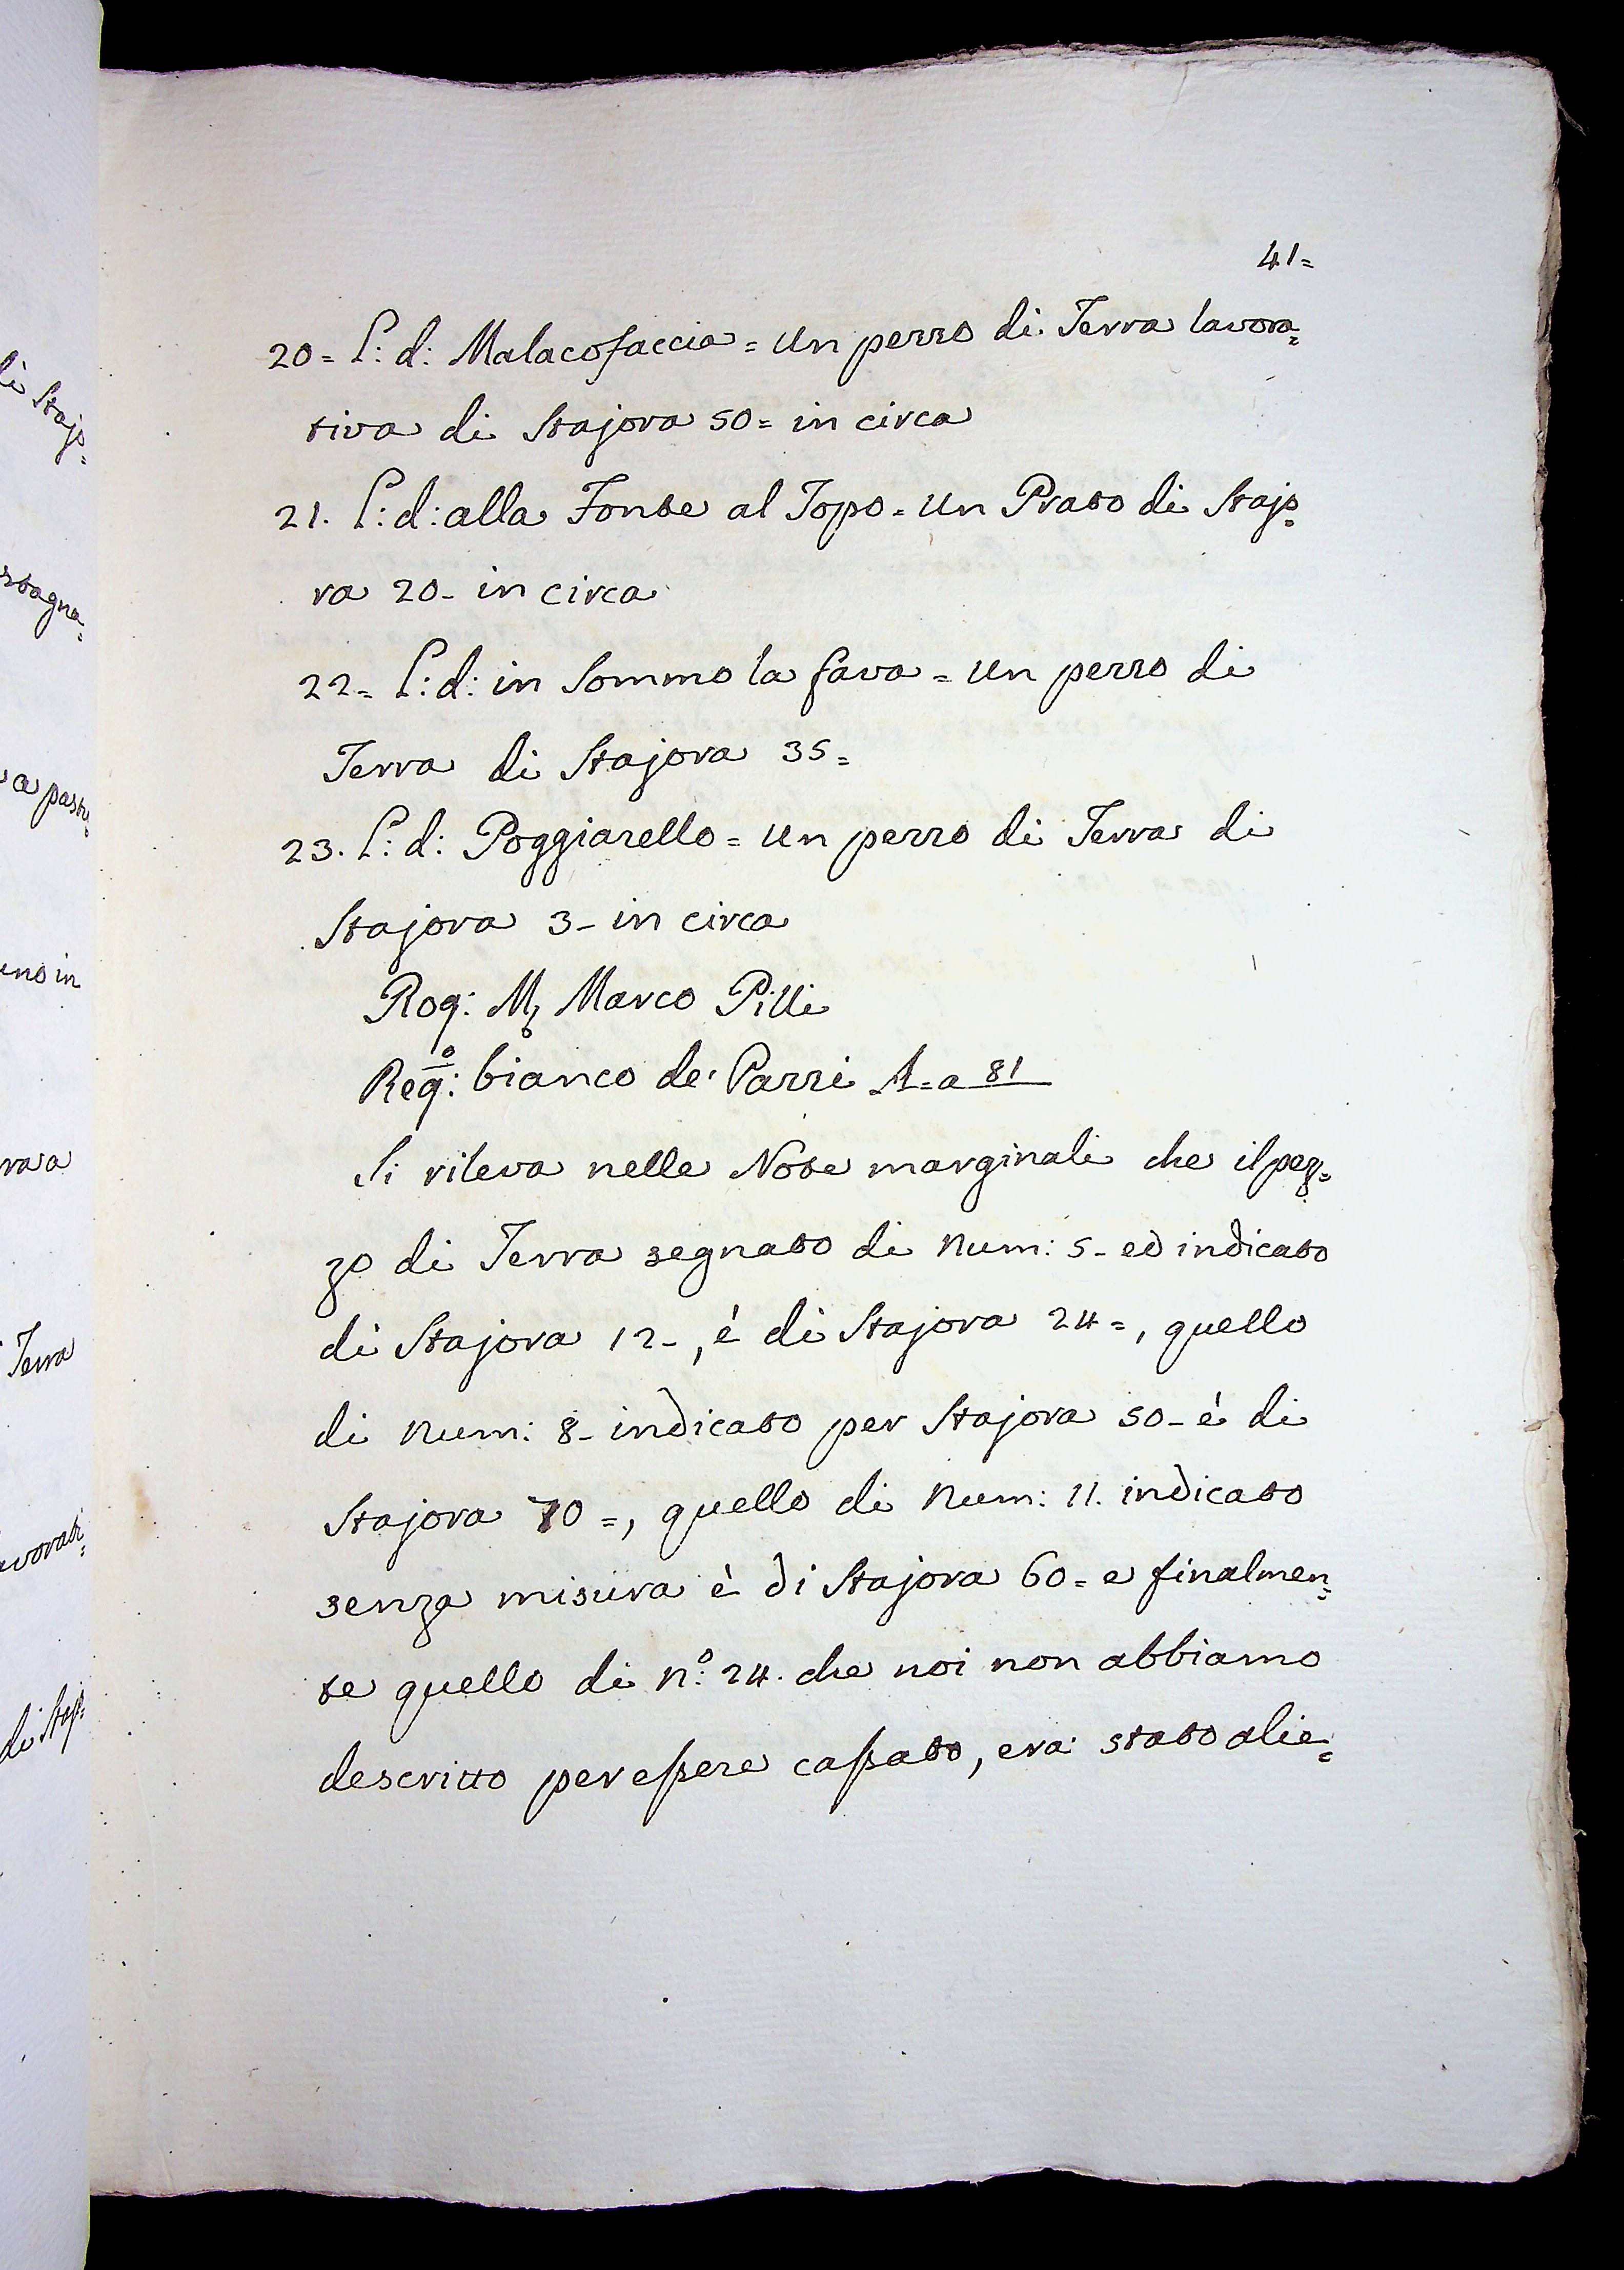 41=
20= L: d: Malacofaccia = Un pezzo di Terra lavora=
tiva di Stajora 50= in circa
21. L: d: alla Fonte al Topo = Un Prato di Stajo=
ra 20- in circa
22= L: d: in Sommo la fava = Un pezzo di
Terra di Stajora 35=
23. L: d: Poggiarello = Un pezzo di Terra di
Stajora 3- in circa
Rog: M. Marco Pilli
Reg:º bianco de' Pazzi A= a 81
Si rileva nelle Note marginali che il pez=
zo di Terra segnato di Num: 5- ed indicato
di Stajora 12-, è di Stajora 24=, quello
di Num: 8- indicato per Stajora 50- è di
Stajora 70=, quello di Num: 11. indicato
senza misura è di Stajora 60= e finalmen=
te quello di nº: 24. che noi non abbiamo
descritto per essere cassato, era stato alie=
di Stajo=
stagna=
a pastu=
uno in
rara
Terra
avorati=
di Staj=